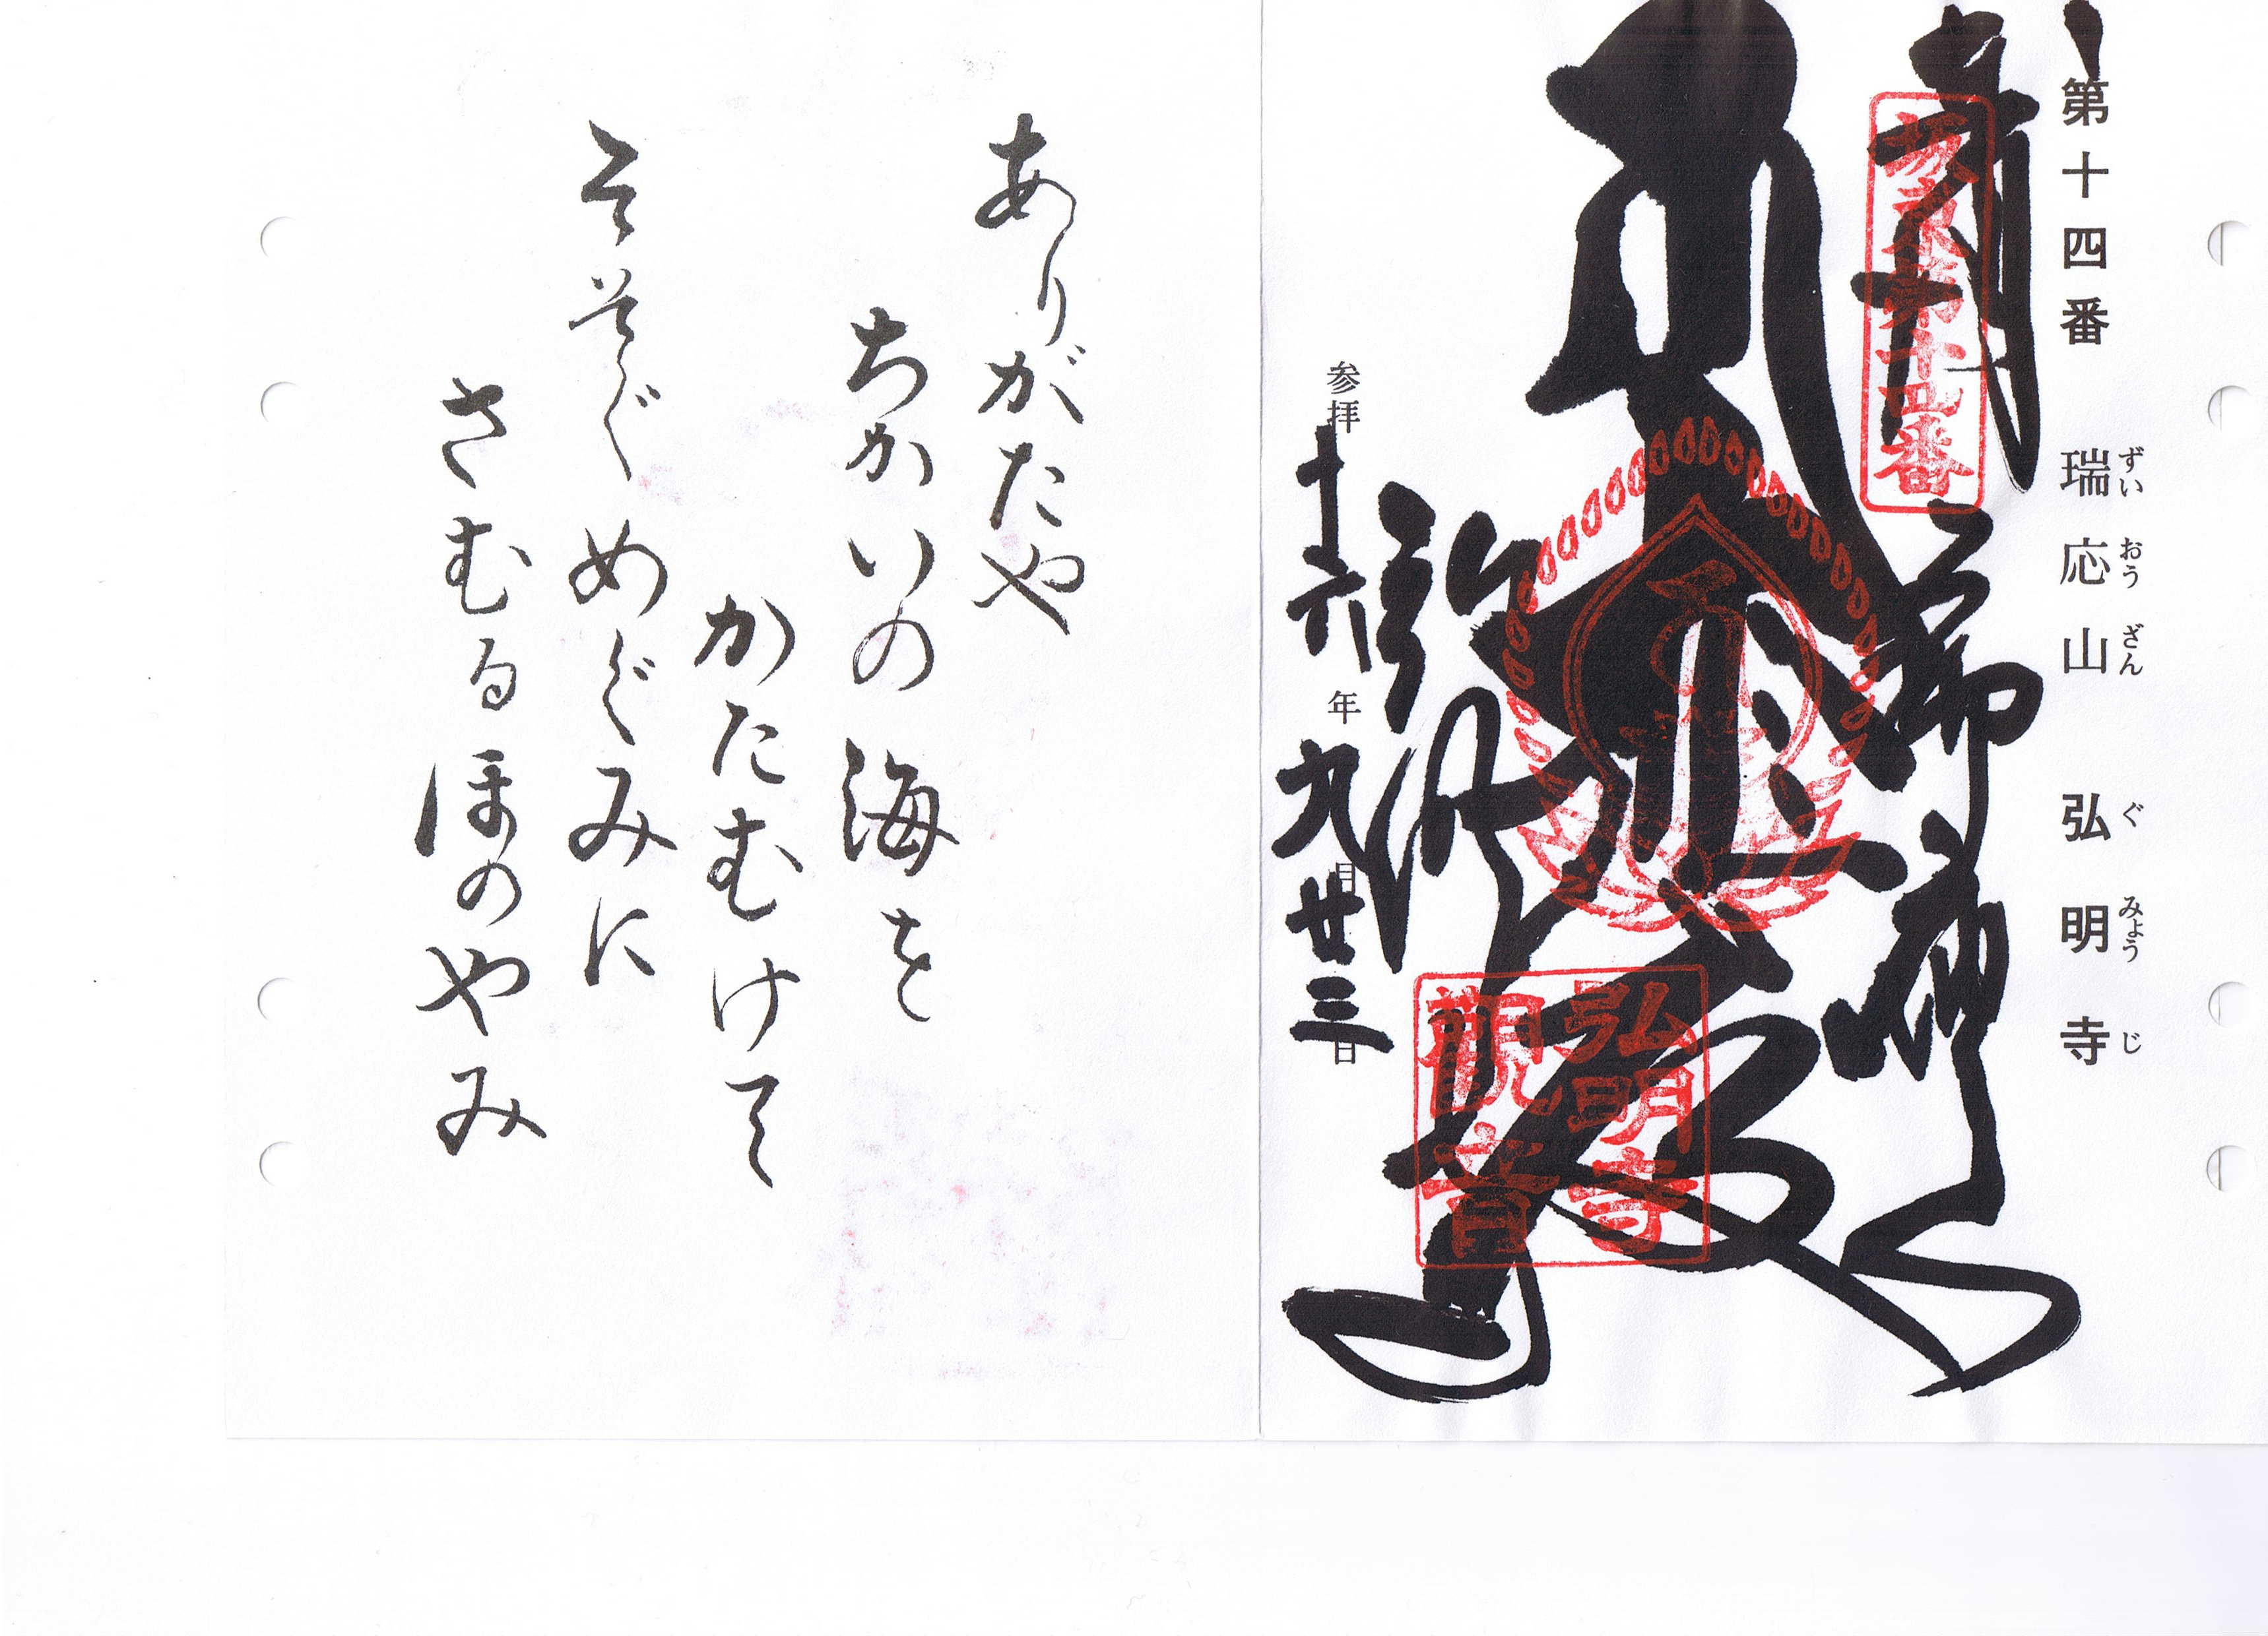 第十四番 瑞応山 弘明寺
ずいおうざん ぐみょうじ
坂東第十四番
弘明寺
観音
参拝 十六年 九月 廿三日
ありがたや
ちかいの海を
かたむけて
そそぐめぐみに
さむるほのやみ